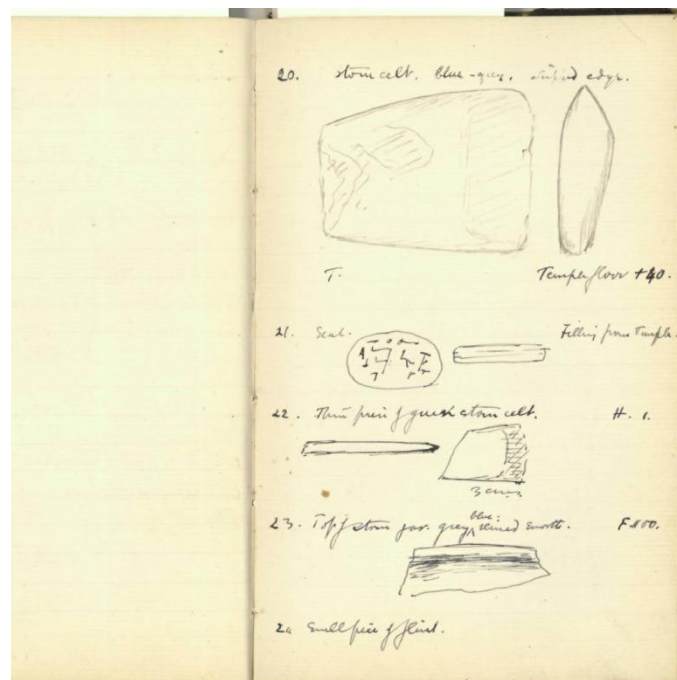 20. Stone celt. blue-grey. edge.
T. Temple floor +40.
21. Seal. Filling from Temple.
22. Thin piece of greenish stone celt. H. 1.
3 cms
blue:
23. Top of stone jar. grey, smooth. F 800.
24 Small piece of flint.